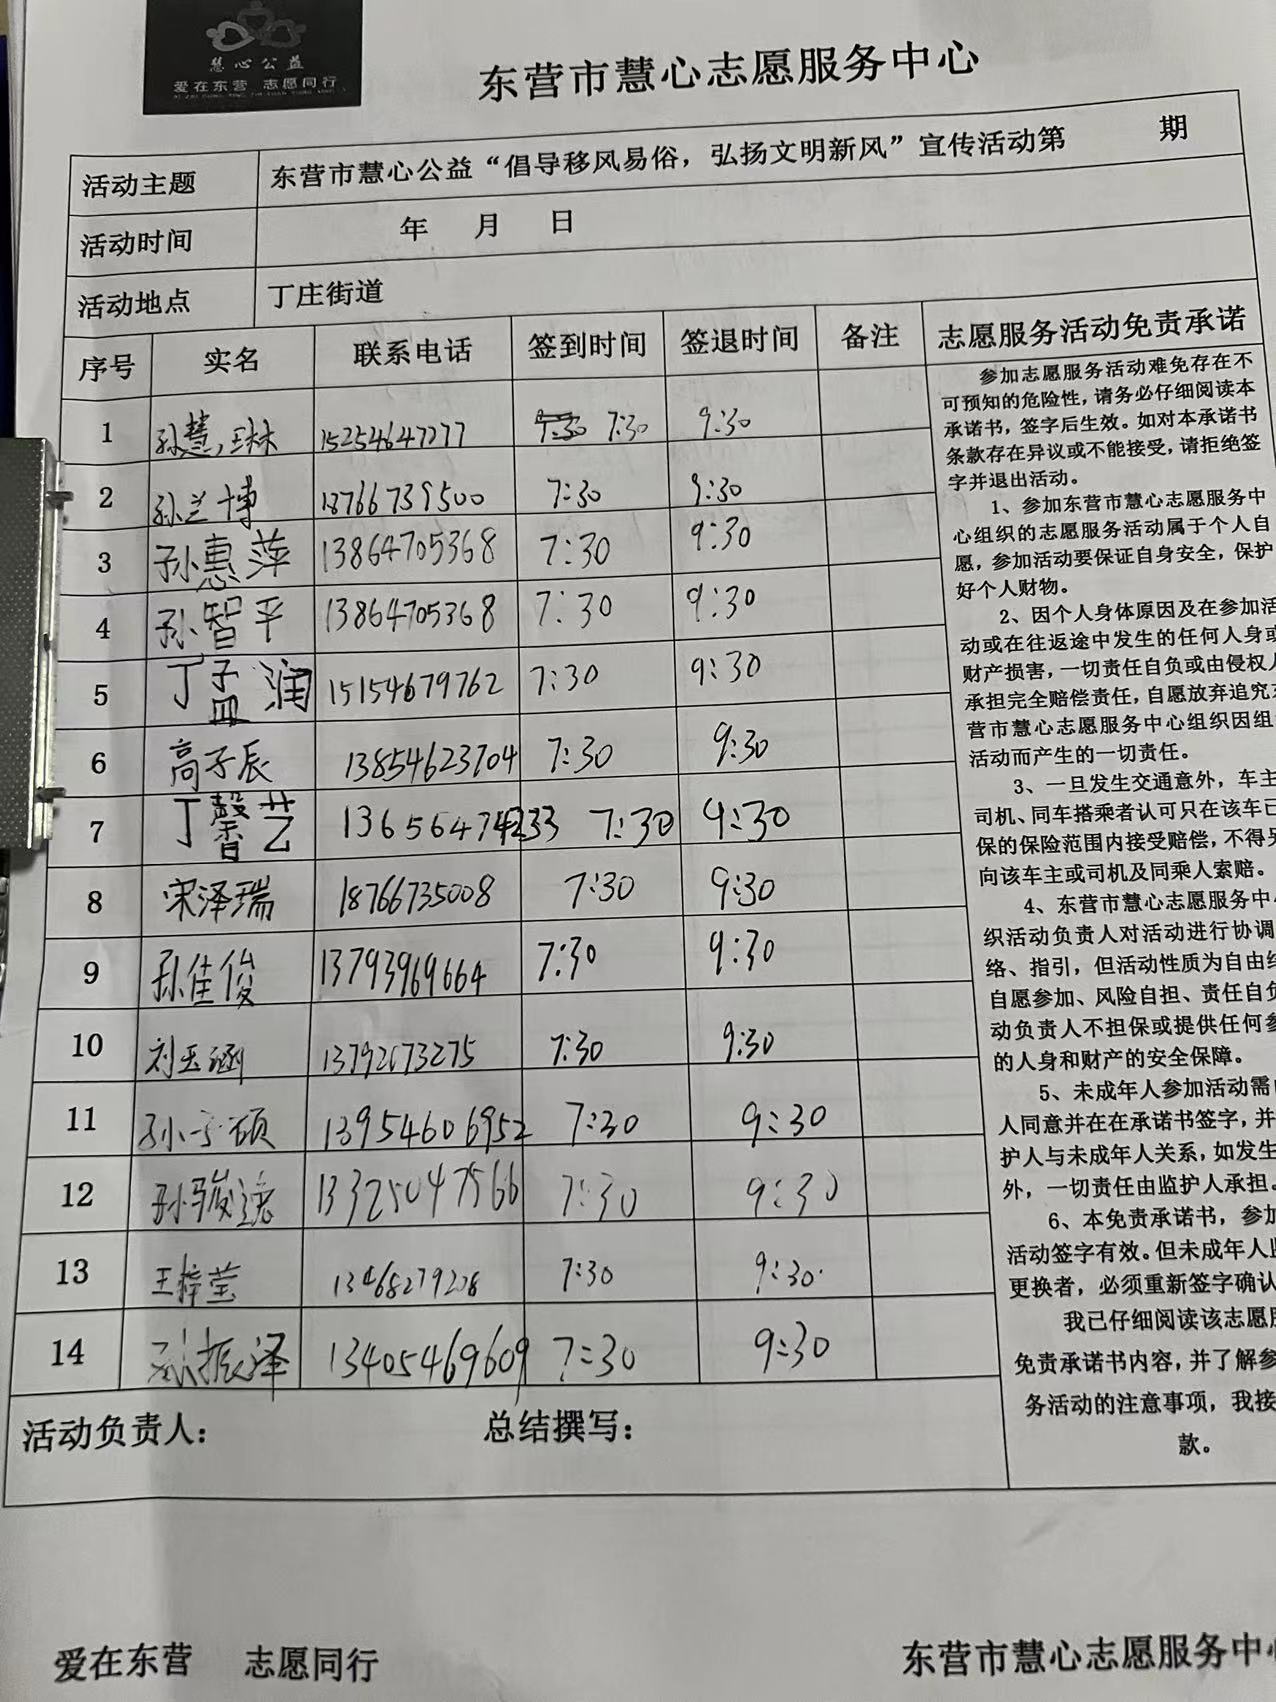 慧心公益
爱在东营 志愿同行
东营市慧心志愿服务中心
活动主题 东营市慧心公益“倡导移风易俗，弘扬文明新风”宣传活动第 期
活动时间 年 月 日
活动地点 丁庄街道
序号 实名 联系电话 签到时间 签退时间 备注 志愿服务活动免责承诺
1 孙慧琳 15254647277 7:30 9:30
2 孙兰博 18766739500 7:30 9:30
3 孙惠萍 13864705368 7:30 9:30
4 孙智平 13864705368 7:30 9:30
5 丁孟润 15154679762 7:30 9:30
6 高子辰 13854623704 7:30 9:30
7 丁馨艺 7:30 9:30
8 宋泽瑞 18766735008 7:30 9:30
9 孙佳俊 13793969664 7:30 9:30
10 刘玉涵 13792073275 7:30 9:30
11 孙子硕 13954606952 7:30 9:30
12 孙骏逸 13325047566 7:30 9:30
13 王梓莹 7:30 9:30
14 孙振泽 13405469609 7:30 9:30
参加志愿服务活动难免存在不
可预知的危险性，请务必仔细阅读本
承诺书，签字后生效。如对本承诺书
条款存在异议或不能接受，请拒绝签
字并退出活动。
1、参加东营市慧心志愿服务中
心组织的志愿服务活动属于个人自
愿，参加活动要保证自身安全，保护
好个人财物。
2、因个人身体原因及在参加活
动或在往返途中发生的任何人身或
财产损害，一切责任自负或由侵权人
承担完全赔偿责任，自愿放弃追究东
营市慧心志愿服务中心组织因组
活动而产生的一切责任。
3、一旦发生交通意外，车主
司机、同车搭乘者认可只在该车已
保的保险范围内接受赔偿，不得另
向该车主或司机及同乘人索赔。
4、东营市慧心志愿服务中心
织活动负责人对活动进行协调
络、指引，但活动性质为自由组
自愿参加、风险自担、责任自负
动负责人不担保或提供任何参
的人身和财产的安全保障。
5、未成年人参加活动需
人同意并在在承诺书签字，并
护人与未成年人关系，如发生
外，一切责任由监护人承担。
6、本免责承诺书，参加
活动签字有效。但未成年人监
更换者，必须重新签字确认
我已仔细阅读该志愿服
免责承诺书内容，并了解参
务活动的注意事项，我接
款。
活动负责人： 总结撰写：
爱在东营 志愿同行 东营市慧心志愿服务中心